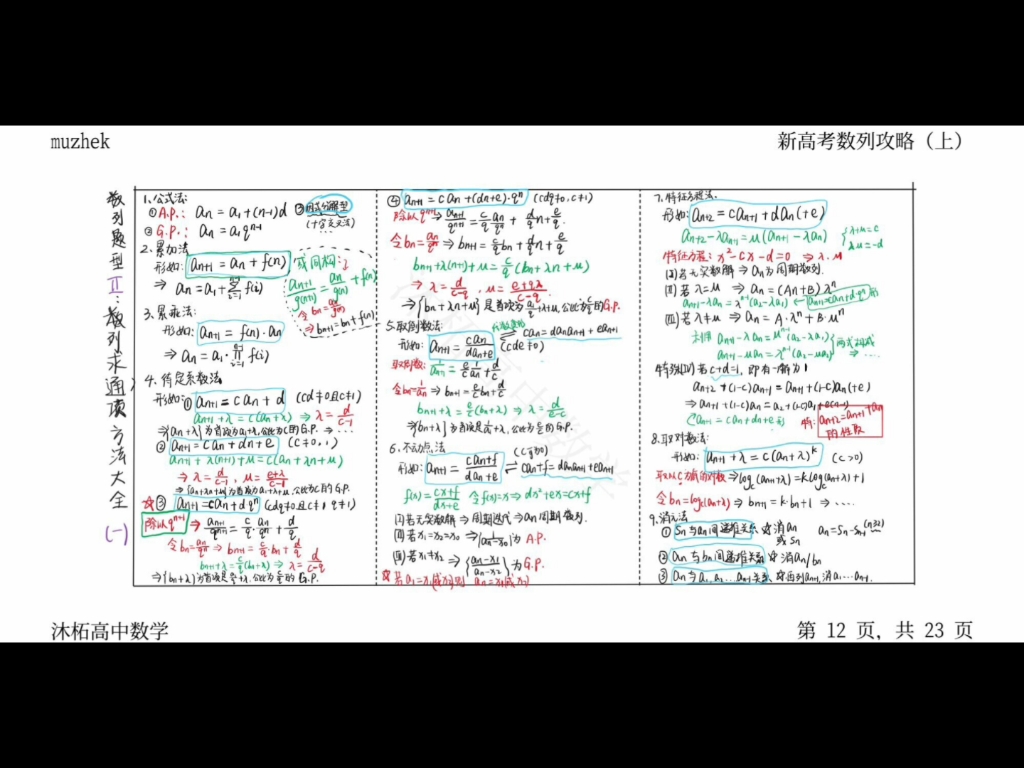 muzhek
新高考数列攻略（上）
数列题型Ⅱ：数列求通项方法大全（一）
1.公式法:
①A.P.: an = a1 + (n-1)d ③因式分解型
②G.P.: an = a1q^(n-1) (十字叉叉法)
2.累加法
形如: an+1 = an + f(n)
⇒ an = a1 + Σ f(i)
或同构:
an+1/g(n+1) = an/g(n) + f(n)
令bn = an/g(n)
⇒ bn+1 = bn + f(n)
3.累乘法:
形如: an+1 = f(n)·an
⇒ an = a1·∏ f(i)
4.待定系数法:
形如: ① an+1 = can + d (cd≠0且c≠1)
an+1 + λ = c(an + λ) ⇒ λ = d/(c-1)
⇒{an+λ}为首项为a1+λ,公比为c的G.P. ⇒ ...
② an+1 = can + dn + e (c≠0,1)
an+1 + λ(n+1) + μ = c(an + λn + μ)
⇒ λ = d/(c-1), μ = (e+λ)/(c-1)
⇒{an+λn+μ}为首项为a1+λ+μ,公比为c的G.P.
☆③ an+1 = can + dq^n (cdq≠0且c≠1,q≠1)
除以q^(n+1) ⇒ an+1/q^(n+1) = c/q·an/q^n + d/q
令bn = an/q^n ⇒ bn+1 = c/q·bn + d/q
bn+1 + λ = c/q(bn + λ) ⇒ λ = d/(c-q)
⇒{bn+λ}为首项为a1/q+λ,公比为c/q的G.P.
④ an+1 = can + (dn+e)·q^n (cdq≠0,c≠1)
除以q^(n+1) ⇒ an+1/q^(n+1) = c/q·an/q^n + d/q n + e/q
令bn = an/q^n ⇒ bn+1 = c/q bn + d/q n + e/q
bn+1 + λ(n+1) + μ = c/q(bn + λn + μ)
⇒ λ = d/(c-q), μ = (e+qλ)/(c-q)
⇒{bn+λn+μ}是首项为a1/q+λ+μ,公比为c/q的G.P.
5.取倒数法:
形如: an+1 = can/(dan+e) ⇌ can = danan+1 + ean+1
(cde≠0)
取倒数: 1/an+1 = e/c·1/an + d/c
令bn = 1/an ⇒ bn+1 = e/c bn + d/c
bn+1 + λ = e/c(bn + λ) ⇒ λ = d/(e-c)
⇒{bn+λ}为首项是1/a1+λ,公比为e/c的G.P.
6.不动点法
形如: an+1 = (can+f)/(dan+e) ⇌ can + f = danan+1 + ean+1
f(x) = (cx+f)/(dx+e) 令f(x)=x ⇒ dx²+ex = cx+f
(Ⅰ)若无实数解 ⇒ 周期迭代 ⇒ an周期数列.
(Ⅱ)若x1=x2=x0 ⇒ {1/(an-x0)}为A.P.
(Ⅲ)若x1≠x2 ⇒ {(an-x1)/(an-x2)}为G.P.
☆若a1=x1(或x2)则 an=x1(或x2)
7.特征方程法:
形如: an+2 = can+1 + dan (+e)
an+2 - λan+1 = μ(an+1 - λan) {λ+μ=c
λμ=-d
特征方程: x² - cx - d = 0 ⇒ λ,μ
(Ⅰ)若无实数解 ⇒ an为周期数列.
(Ⅱ)若λ=μ ⇒ an = (An+B)λ^n
(Ⅲ)若λ≠μ ⇒ an = A·λ^n + B·μ^n
an+1 - λan = μ^(n-1)(a2 - λa1)
an+1 - μan = λ^(n-1)(a2 - μa1) ⇒ ...
特别(Ⅳ)若c+d=1,即有一解为1
an+2 + (1-c)an+1 = an+1 + (1-c)an (+e)
特: an+2 = an+1 + an
8.取对数法:
形如: an+1 + λ = c(an+λ)^k (c>0)
取以c为底的对数 ⇒ logc(an+1+λ) = klogc(an+λ) + 1
令bn = logc(an+λ) ⇒ bn+1 = k·bn + 1 ⇒ ...
9.消元法
① Sn与an间递推关系 ☆消an或Sn an = Sn - Sn-1 (n≥2)
② an与bn间递推关系 ☆消an/bn
③ an与a1,a2...an-1关系 ☆再列an+1,消a1...an-1.
沐柘高中数学
第 12 页，共 23 页